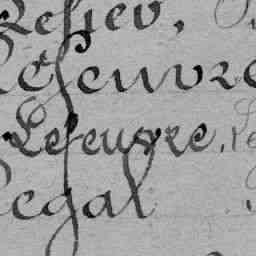 Resiev,
Lefeuvre
Lefeuvre, Le
Legal